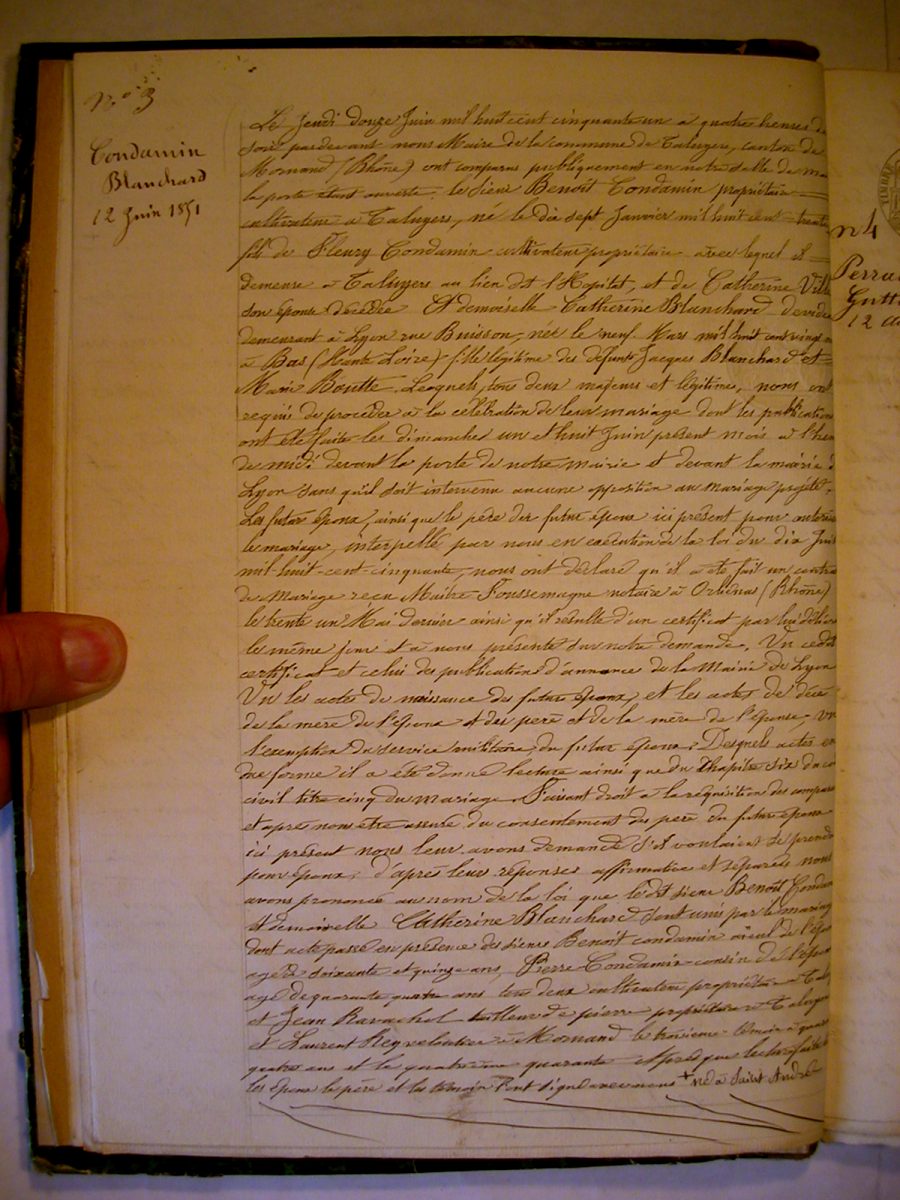 N° 3
Condamin
Blanchard
12 Juin 1851
Le Jeudi douze Juin mil huit cent cinquante un a quatre heures du
soir pardevant nous Maire de la commune de Taluyers, canton de
Mornand (Rhône) ont comparus publiquement en notre salle de mai
la porte étant ouverte, le sieur Benoît Condamin propriétaire
cultivateur a Taluyers, né le dix sept Janvier mil huit cent trente
fils de Fleury Condamin cultivateur propriétaire avec lequel il
demeure a Taluyers au lieu dit l'Hopital, et de Catherine Vill
son épouse décédée Et demoiselle Catherine Blanchard dévide
demeurant à Lyon rue Buisson, née le neuf Mars mil huit cent vingt
à Bas (Haute Loire) fille légitime des défunts Jacques Blanchard et
Marie Boutte. Lesquels, tous deux majeurs et légitimes, nous ont
requis de procéder a la célébration de leur mariage dont les publications
ont été faites les dimanches un et huit Juin présent mois a l'heu
de midi devant la porte de notre mairie et devant la mairie d
Lyon sans qu'il soit intervenu aucune opposition au mariage projeté.
Les futur époux, ainsi que le père der futur époux ici présent pour autoris
le mariage, interpellé par nous en exécution de la loi du dix Juil
mil huit-cent-cinquante, nous ont déclaré qu'il a été fait un contra
de Mariage reçu Maitre Foussemagne notaire à Orliénas (Rhône)
le trente un Mai dernier ainsi qu'il résulte d'un certificat par lui délivré
le même jour et a nous présenté sur notre demande. Vu ce dit
certificat et celui des publications d'annonce de la Mairie de Lyon
Vu les actes de naissance des futurs époux, et les actes de décè
de la mère de l'époux et des père et de la mère de l'épouse, vu
l'exemption du service militaire du futur époux. Desquels actes en
due forme il a été donné lecture ainsi que du Chapitre six du co
civil titre cinq du mariage. Faisant droit a la réquisition des comparu
et après nous être assuré du consentement des père du futur époux
ici présent nous leur avons demandé s'il voulaient se prendre
pour époux; d'après leurs réponses affirmative et séparées nous
avons prononcé au nom de la loi que le dit sieur Benoît Condam
et demoiselle Catherine Blanchard sont unis par le mariage
dont acte passé en présence des sieurs Benoît condamin aïeul de l'épou
agé de soixante et quinze ans, Pierre Condamin cousin de l'époux
agé de quarante quatre ans tous deux cultivateur propriétaire a Talu
et Jean Ravachol tailleur de pierre propriétaire a Taluyers
et Laurent Rey veloutier a Mornand le troisième témoin a quara
quatre ans et le quatrième quarante Après que lecture faite
les époux le père et les témoin l'ont signé avec nous + né à Saint André
n 4
Perra
Gutt
12 a